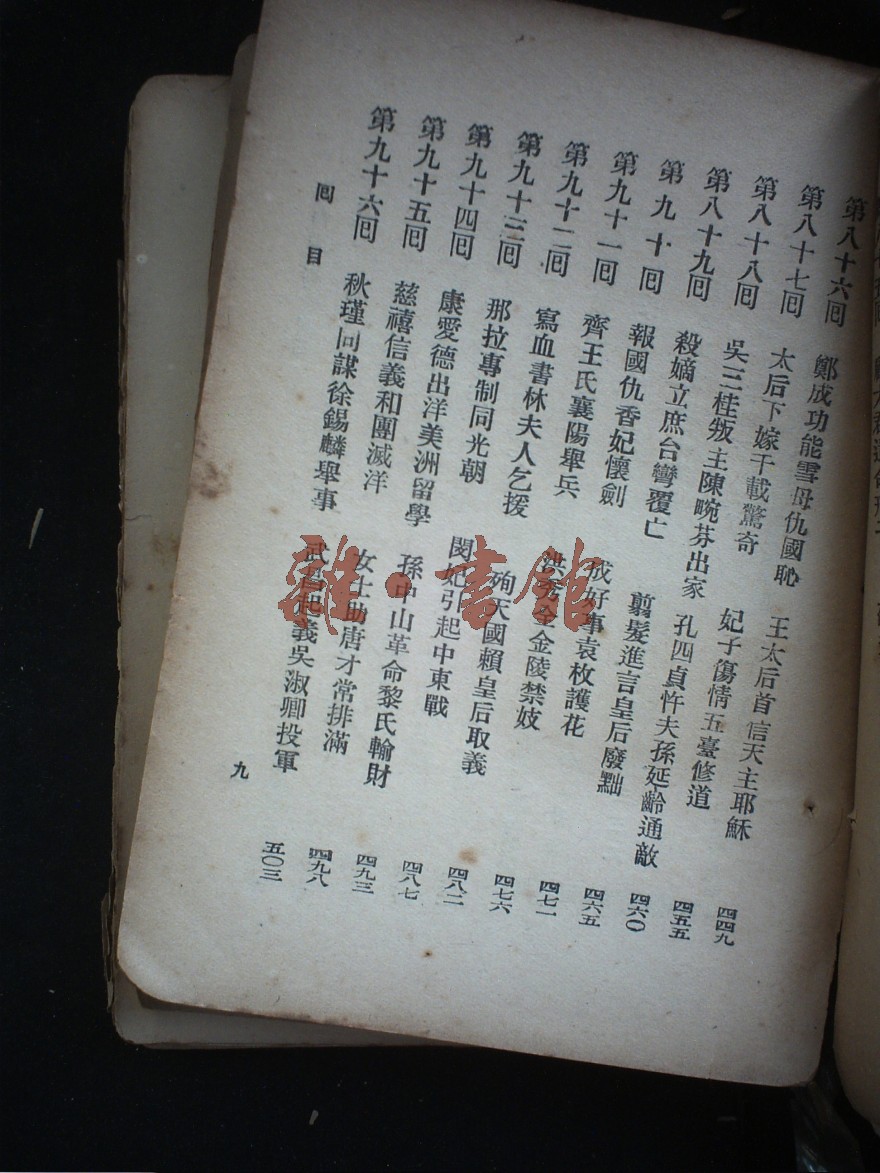 第八十六回 鄭成功能雪母仇國恥 王太后首信天主耶穌 四四九
第八十七回 太后下嫁千載驚奇 妃子傷情五臺修道 四五五
第八十八回 吳三桂叛主陳畹芬出家 孔四貞忤夫孫延齡通敵 四六〇
第八十九回 殺嫡立庶台彎覆亡 翦髮進言皇后廢黜 四六五
第九十回 報國仇香妃懷劍 成好事袁枚護花 四七一
第九十一回 齊王氏襄陽舉兵 洪秀全金陵禁妓 四七六
第九十二回 寫血書林夫人乞援 殉天國賴皇后取義 四八二
第九十三回 那拉專制同光朝 閔妃引起中東戰 四八七
第九十四回 康愛德出洋美洲留學 孫中山革命黎氏輸財 四九三
第九十五回 慈禧信義和團滅洋 女士助唐才常排滿 四九八
第九十六回 秋瑾同謀徐錫麟舉事 武昌起義吳淑卿投軍 五〇三
回目 九
雜·書館